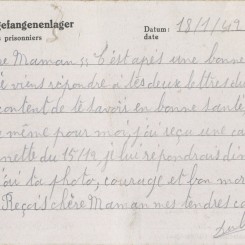 gefangenenlager
Datum: 18/1/42
s prisonniers
date
re Maman " C'est après une bonne
e viens répondre à tes deux lettres du
content de te savoir en bonne santé
même pour moi, j'ai reçu une ca
nette du 15/12, je lui répondrais di
ta photo, courage et bon mor
Reçois chère Maman mes tendres ca